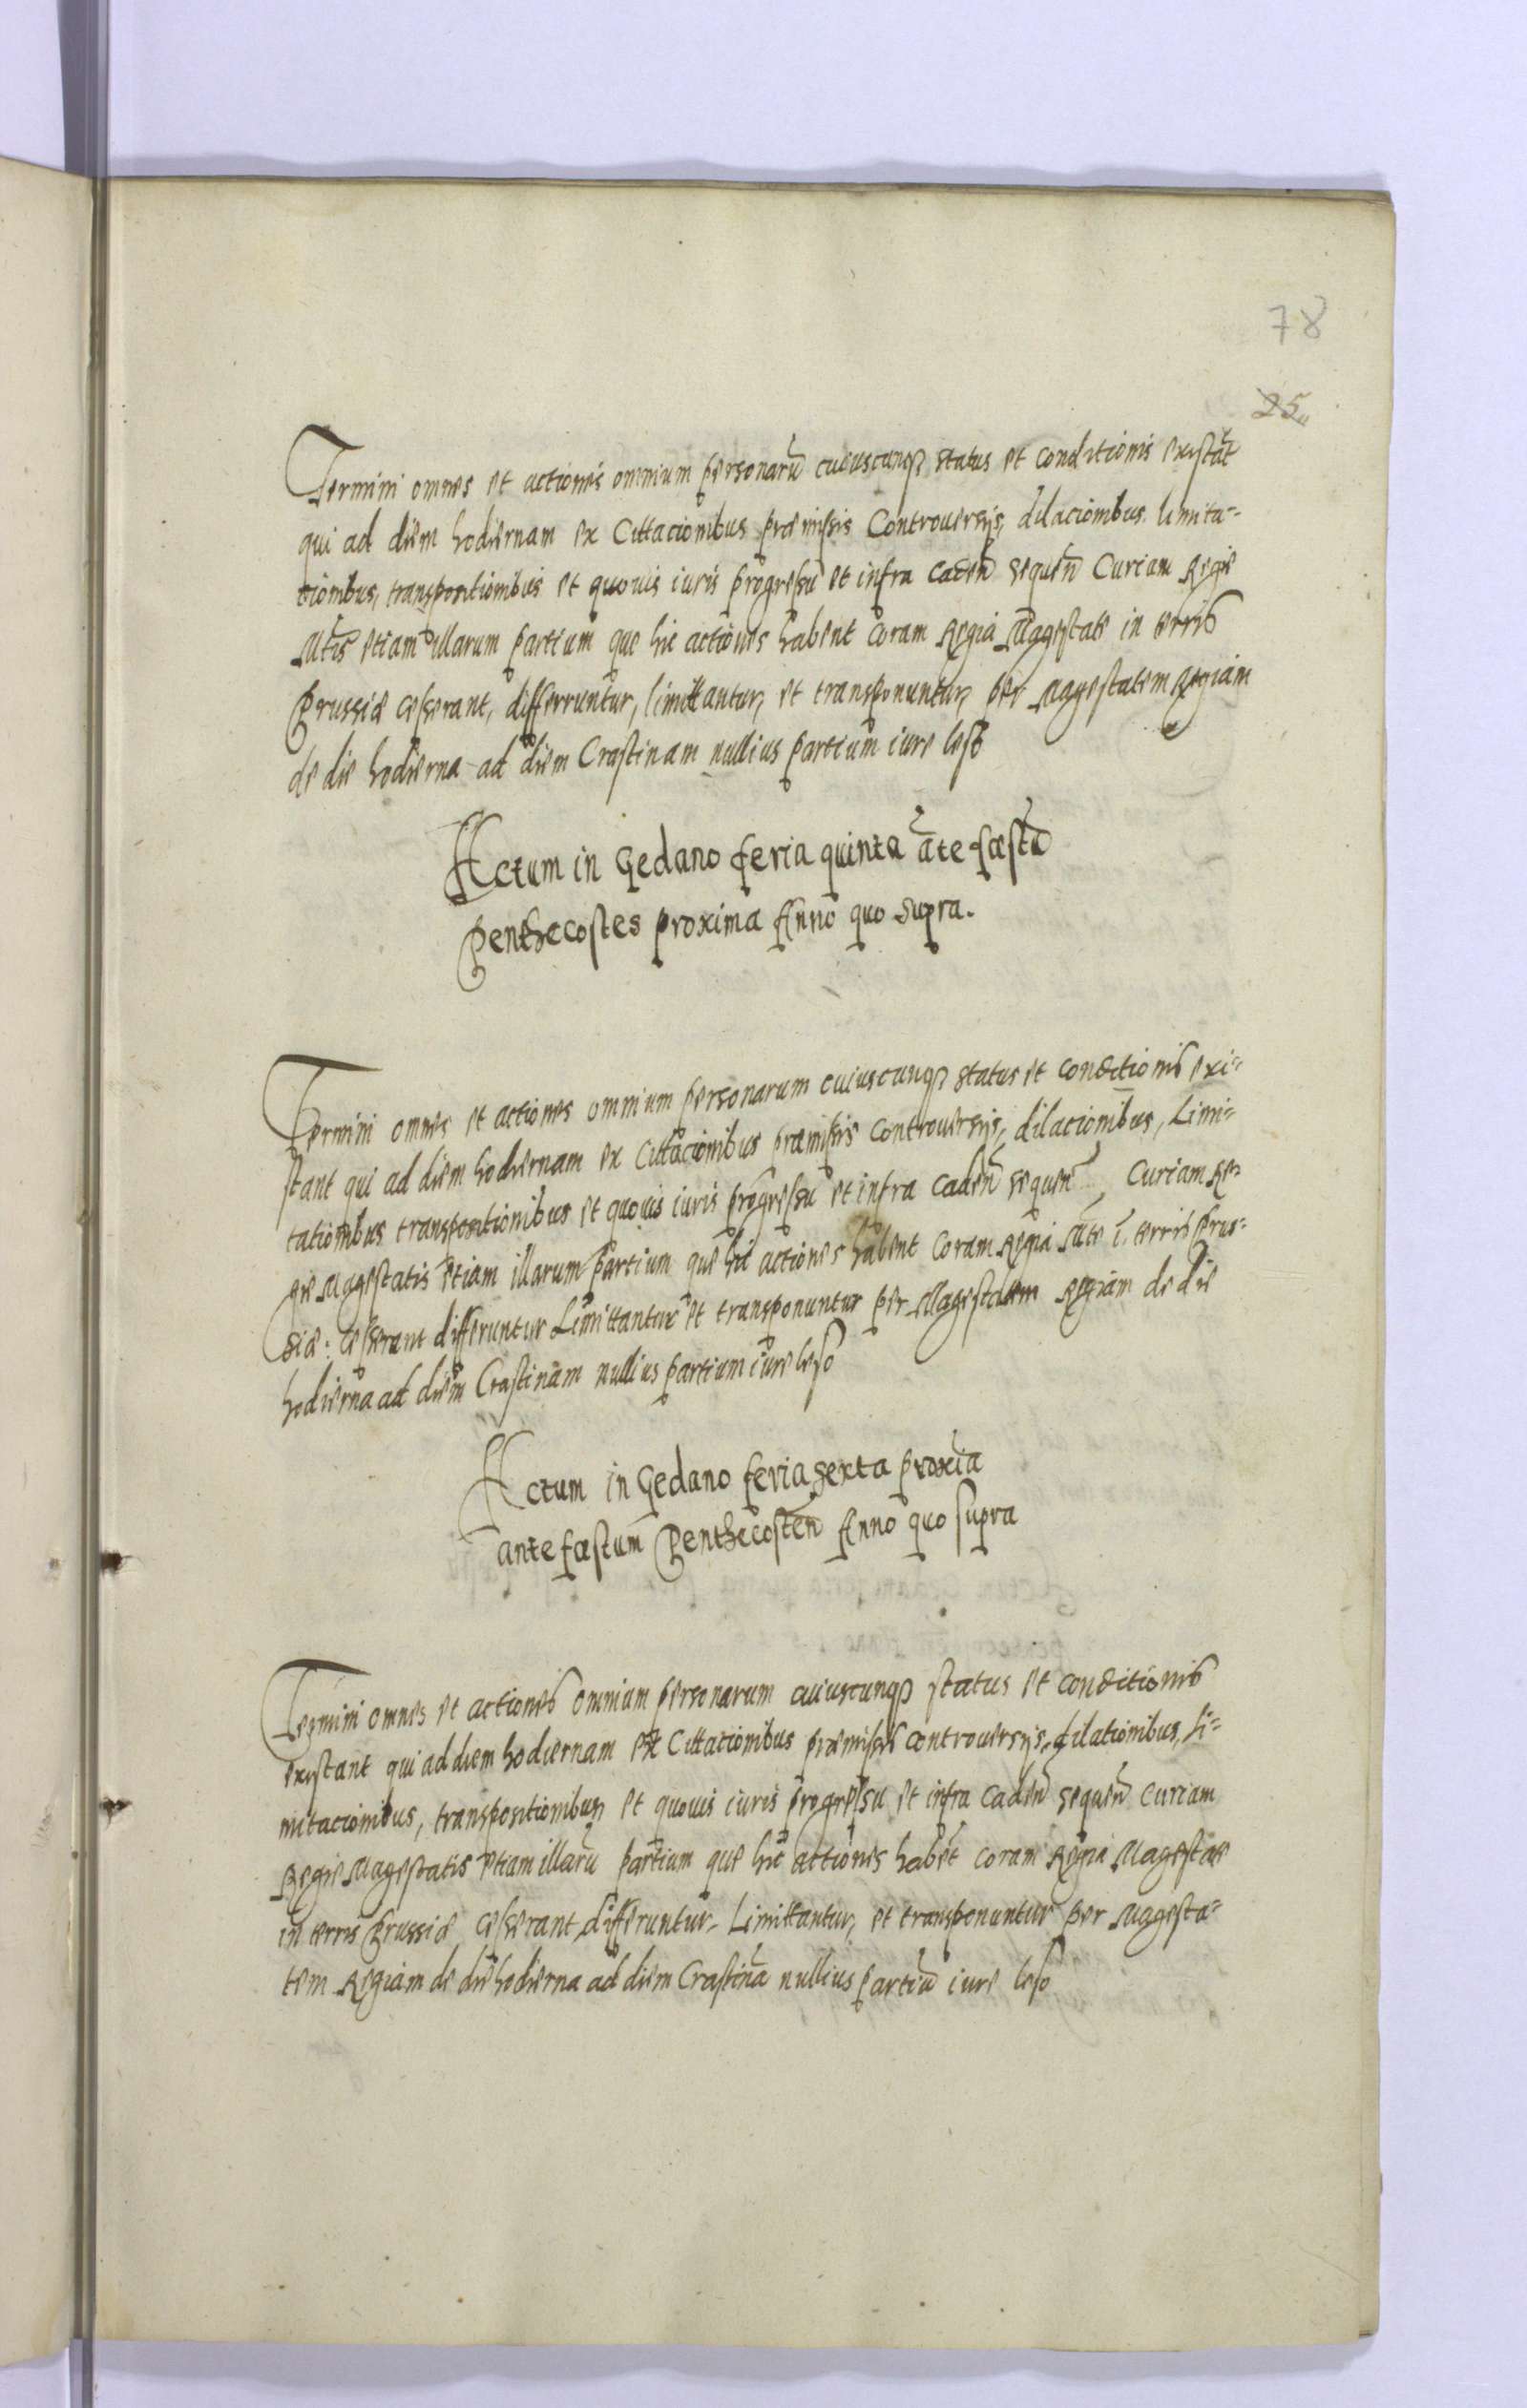 78
25
Termini omnes et actiones omnium personarũ cuiuscunqꝫ status et conditionis existãt
qui ad diem hodiernam ex Cittacionibus præmissis Controuersijs, dilacionibus limita-
tionibus, transpositionibus et quouis iuris progressu et infra Caden̄ sequen̄ Curiam Regie
Mtis etiam illarum partium que hic actiones habent coram Regia Magestate in terris
Prussiæ cesserant, differruntur, limittantur, et transponuntur, per Magestatem Regiam
de die hodierna ad diem Crastinam nullius partium iure leso
Actum in Gedano feria quinta ãte fæstũ
Penthecostes proxima Anno quo supra.
Termini omnes et actiones omnium personarum cuiuscunqꝫ status et conditionis exi-
stant qui ad diem hodiernam ex Cittacionibus præmissis controuersijs, dilacionibus, Limi-
tationibus transpositionibus et quouis iuris progressu et infra Caden̄ sequen̄ Curiam Re-
gie Magestatis etiam illarum partium que hic actiones habent Coram Regia Mte ĩ terris Prus-
siæ: cesserant differuntur Limittantur et transponuntur per Magestatem Regiam de die
hodierna ad diem Crastinam nullius partium iure leso
Actum in Gedano feria sexta proxĩa
ante fæstum Penthecosten̄ Anno quo supra
Termini omnes et actiones omnium personarum cuiuscunqꝫ status et conditionis
existant qui ad diem hodiernam ex Cittacionibus præmissis controuersijs, dilationibus, li-
mitacionibus, transpositionibus et quouis iuris progressu et infra Caden̄ sequen̄ Curiam
Regie Magestatis etiam illarũ partium que hic actiones habẽt coram Regia Magestate
in terris Prussiæ cesserant, differuntur, Limittantur, et transponuntur per Magesta-
tem Regiam de die hodierna ad diem Crastinã nullius partiũ iure leso